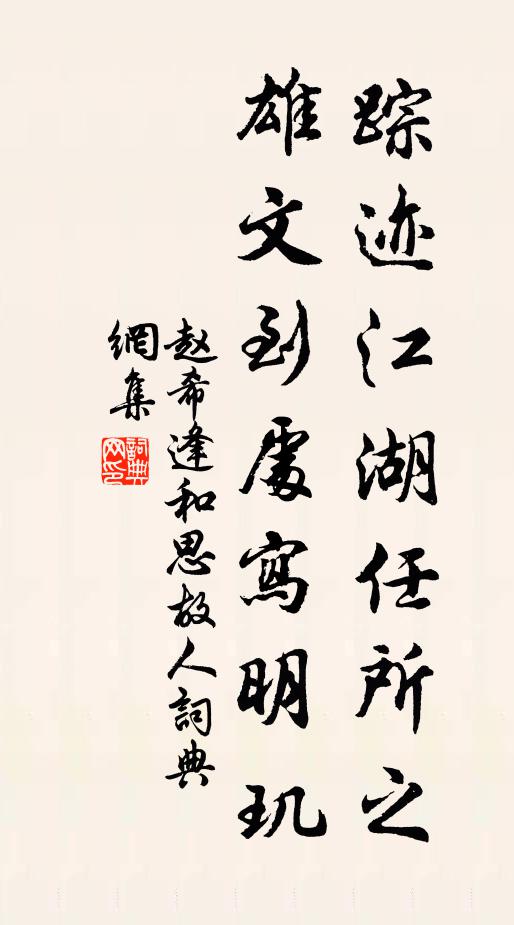 踪迹江湖任所之
雄文到處寫明玑
赵希逢和思故人詞典
網集
詞典
网印